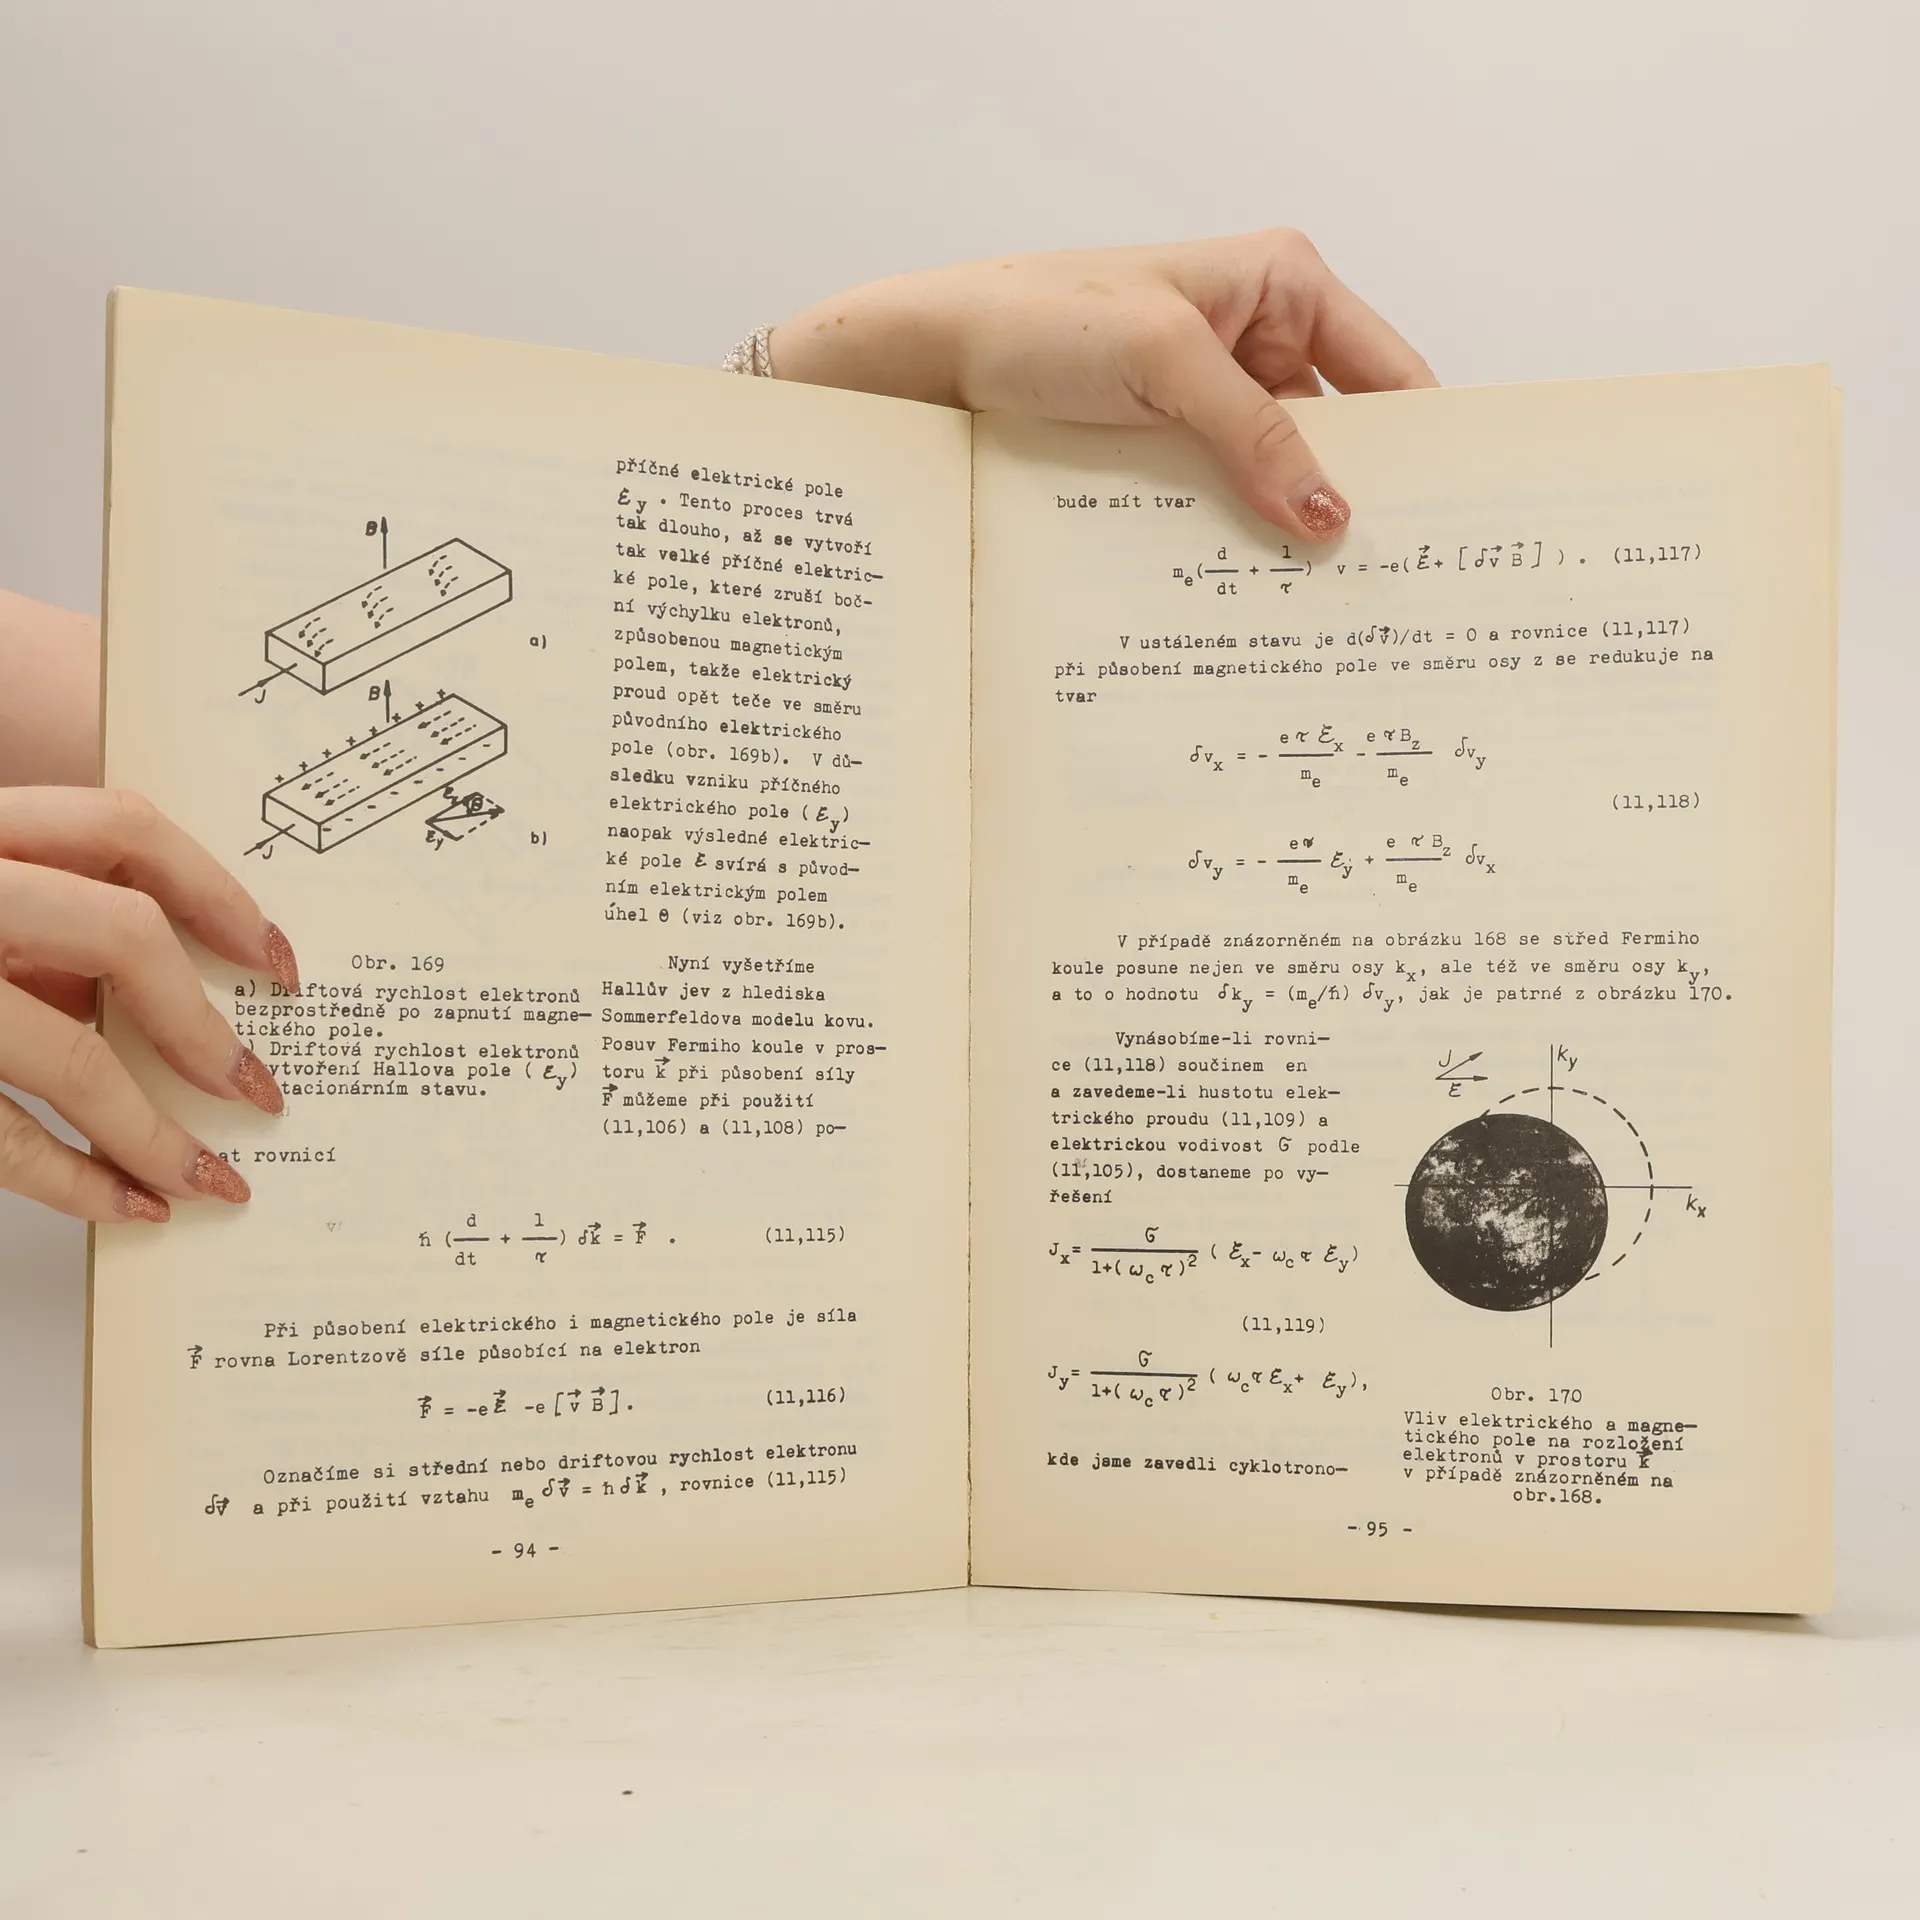 příčné elektrické pole
ℰy . Tento proces trvá
tak dlouho, až se vytvoří
tak velké příčné elektric-
ké pole, které zruší boč-
ní výchylku elektronů,
způsobenou magnetickým
polem, takže elektrický
proud opět teče ve směru
původního elektrického
pole (obr. 169b). V dů-
sledku vzniku příčného
elektrického pole (ℰy)
naopak výsledné elektric-
ké pole ℰ svírá s původ-
ním elektrickým polem
úhel Θ (viz obr. 169b).
B
a)
J
B
+ + + + + + + +
Θ
ℰy
b)
J
Obr. 169
a) Driftová rychlost elektronů
bezprostředně po zapnutí magne-
tického pole.
) Driftová rychlost elektronů
vytvoření Hallova pole ( ℰy)
tacionárním stavu.
Nyní vyšetříme
Hallův jev z hlediska
Sommerfeldova modelu kovu.
Posuv Fermiho koule v pros-
toru k⃗ při působení síly
F⃗ můžeme při použití
(11,106) a (11,108) po-
at rovnicí
ħ (d/dt + 1/τ) δk⃗ = F⃗ . (11,115)
Při působení elektrického i magnetického pole je síla
F⃗ rovna Lorentzově síle působící na elektron
F⃗ = -eℰ⃗ -e[v⃗ B⃗]. (11,116)
Označíme si střední nebo driftovou rychlost elektronu
δv⃗ a při použití vztahu me δv⃗ = ħδk⃗ , rovnice (11,115)
- 94 -
bude mít tvar
me(d/dt + 1/τ) v = -e(ℰ⃗+ [δv⃗ B⃗] ) . (11,117)
V ustáleném stavu je d(δv⃗)/dt = 0 a rovnice (11,117)
při působení magnetického pole ve směru osy z se redukuje na
tvar
δvx = - eτ ℰx/me - eτBz/me δvy
(11,118)
δvy = - eτ/me ℰy + e τBz/me δvx
V případě znázorněném na obrázku 168 se střed Fermiho
koule posune nejen ve směru osy kx, ale též ve směru osy ky,
a to o hodnotu δky = (me/ħ) δvy, jak je patrné z obrázku 170.
Vynásobíme-li rovni-
ce (11,118) součinem en
a zavedeme-li hustotu elek-
trického proudu (11,109) a
elektrickou vodivost σ podle
(11,105), dostaneme po vy-
řešení
Jx= σ/1+(ωcτ)² ( ℰx- ωcτ ℰy)
(11,119)
Jy= σ/1+(ωcτ)² ( ωcτℰx+ ℰy),
kde jsme zavedli cyklotrono-
J
ℰ
ky
kx
Obr. 170
Vliv elektrického a magne-
tického pole na rozložení
elektronů v prostoru k⃗
v případě znázorněném na
obr.168.
- 95 -